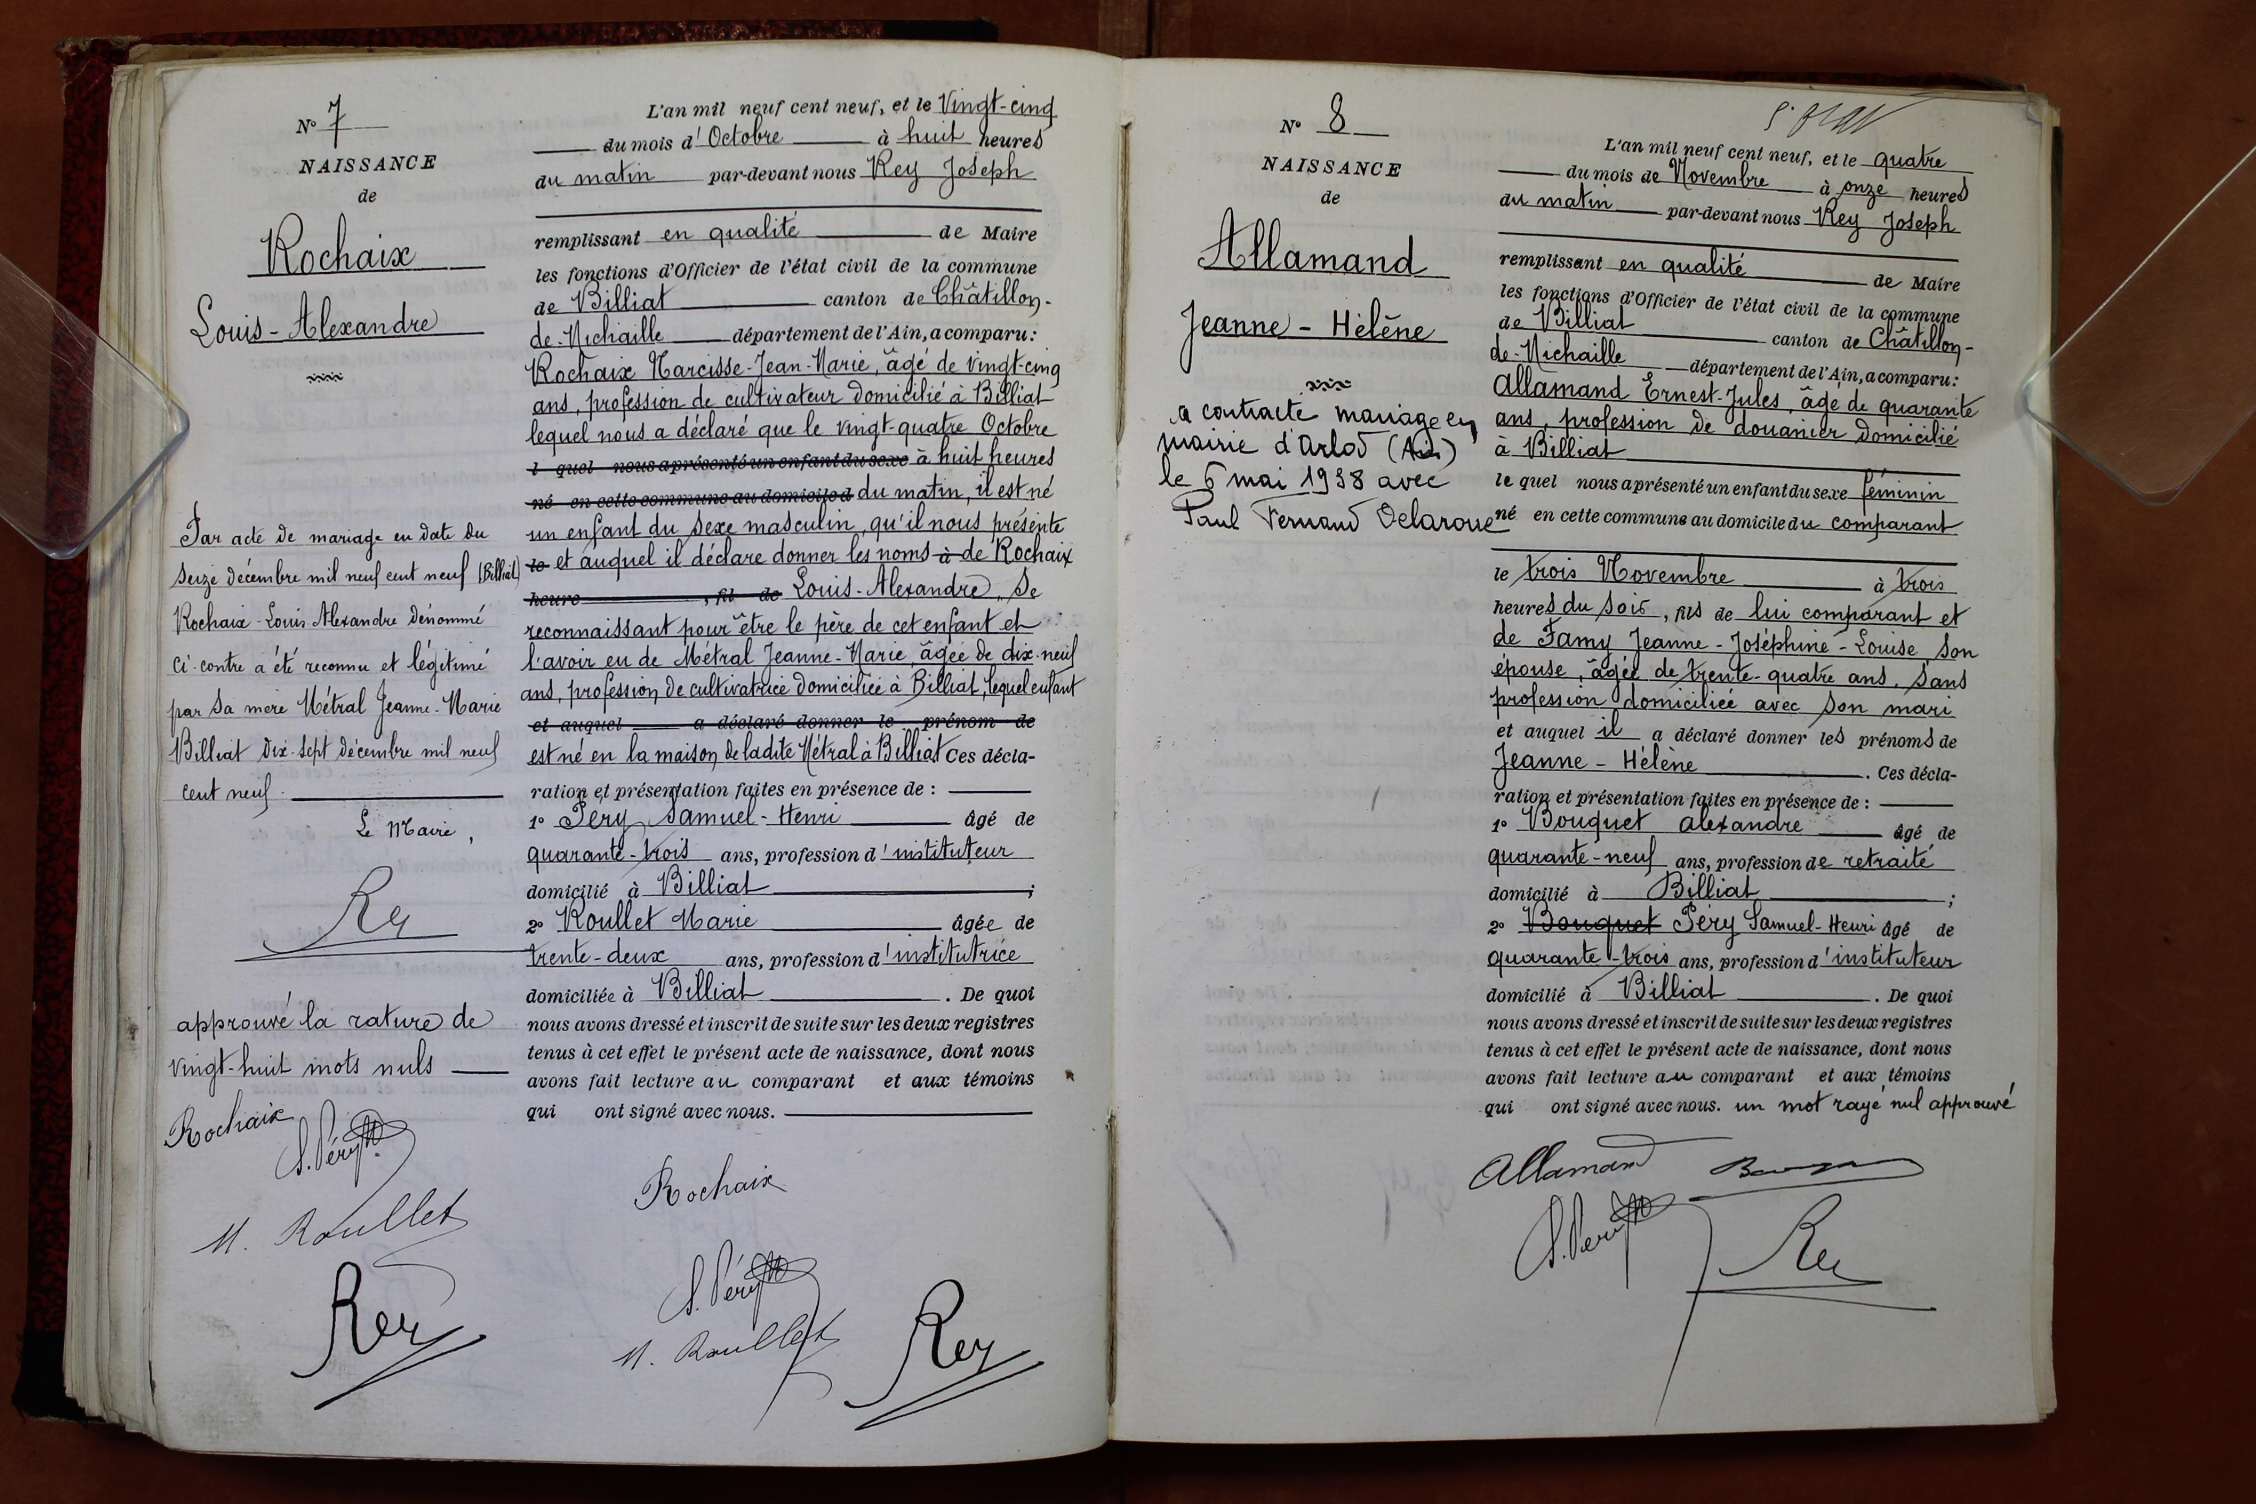 N° 7
NAISSANCE
de
Rochaix
Louis-Alexandre
Par acte de mariage en date du
seize décembre mil neuf cent neuf (Billiat)
Rochaix Louis Alexandre dénommé
ci-contre a été reconnu et légitimé
par sa mère Métral Jeanne-Marie
Billiat dix-sept décembre mil neuf
cent neuf.
Le Maire,
Rey
approuvé la rature de
vingt-huit mots nuls
Rochaix
S. Péry
M. Roullet
Rey
L'an mil neuf cent neuf, et le Vingt-cinq
du mois d'Octobre à huit heures
du matin par-devant nous Rey Joseph
remplissant en qualité de Maire
les fonctions d'Officier de l'état civil de la commune
de Billiat canton de Châtillon-
de-Michaille département de l'Ain, a comparu:
Rochaix Narcisse-Jean-Marie, âgé de vingt-cinq
ans, profession de cultivateur domicilié à Billiat
lequel nous a déclaré que le vingt-quatre Octobre
l quel nous a présenté un enfant du sexe à huit heures
né en cette commune au domicile d du matin, il est né
un enfant du sexe masculin, qu'il nous présente
le et auquel il déclare donner les noms à de Rochaix
heure , fil de Louis-Alexandre, se
reconnaissant pour être le père de cet enfant et
l'avoir eu de Métral Jeanne-Marie, âgée de dix-neuf
ans, profession de cultivatrice domiciliée à Billiat, lequel enfant
et auquel a déclaré donner le prénom de
est né en la maison de ladite Métral à Billiat Ces décla-
ration et présentation faites en présence de :
1° Péry Samuel-Henri âgé de
quarante-trois ans, profession d'instituteur
domicilié à Billiat ;
2° Roullet Marie âgée de
trente-deux ans, profession d'institutrice
domiciliée à Billiat . De quoi
nous avons dressé et inscrit de suite sur les deux registres
tenus à cet effet le présent acte de naissance, dont nous
avons fait lecture au comparant et aux témoins
qui ont signé avec nous.
Rochaix
S. Péry
M. Roullet
Rey
N° 8
NAISSANCE
de
Allamand
Jeanne-Hélène
a contracté mariage en
mairie d'Arlod (Ain)
le 6 mai 1938 avec
Paul Fernand Delaroue
L'an mil neuf cent neuf, et le quatre
du mois de Novembre à onze heures
du matin par-devant nous Rey Joseph
remplissant en qualité de Maire
les fonctions d'Officier de l'état civil de la commune
de Billiat canton de Châtillon-
de-Michaille département de l'Ain, a comparu:
Allamand Ernest-Jules, âgé de quarante
ans, profession de douanier domicilié
à Billiat
le quel nous a présenté un enfant du sexe féminin
né en cette commune au domicile du comparant
le trois Novembre à trois
heures du soir, fils de lui comparant et
de Famy Jeanne-Joséphine-Louise son
épouse, âgée de trente-quatre ans, sans
profession domiciliée avec son mari
et auquel il a déclaré donner les prénoms de
Jeanne-Hélène . Ces décla-
ration et présentation faites en présence de :
1° Bouquet Alexandre âgé de
quarante-neuf ans, profession de retraité
domicilié à Billiat ;
2° Bouquet Péry Samuel-Henri âgé de
quarante-trois ans, profession d'instituteur
domicilié à Billiat . De quoi
nous avons dressé et inscrit de suite sur les deux registres
tenus à cet effet le présent acte de naissance, dont nous
avons fait lecture au comparant et aux témoins
qui ont signé avec nous. un mot rayé nul approuvé
Allamand
S. Péry
Rey